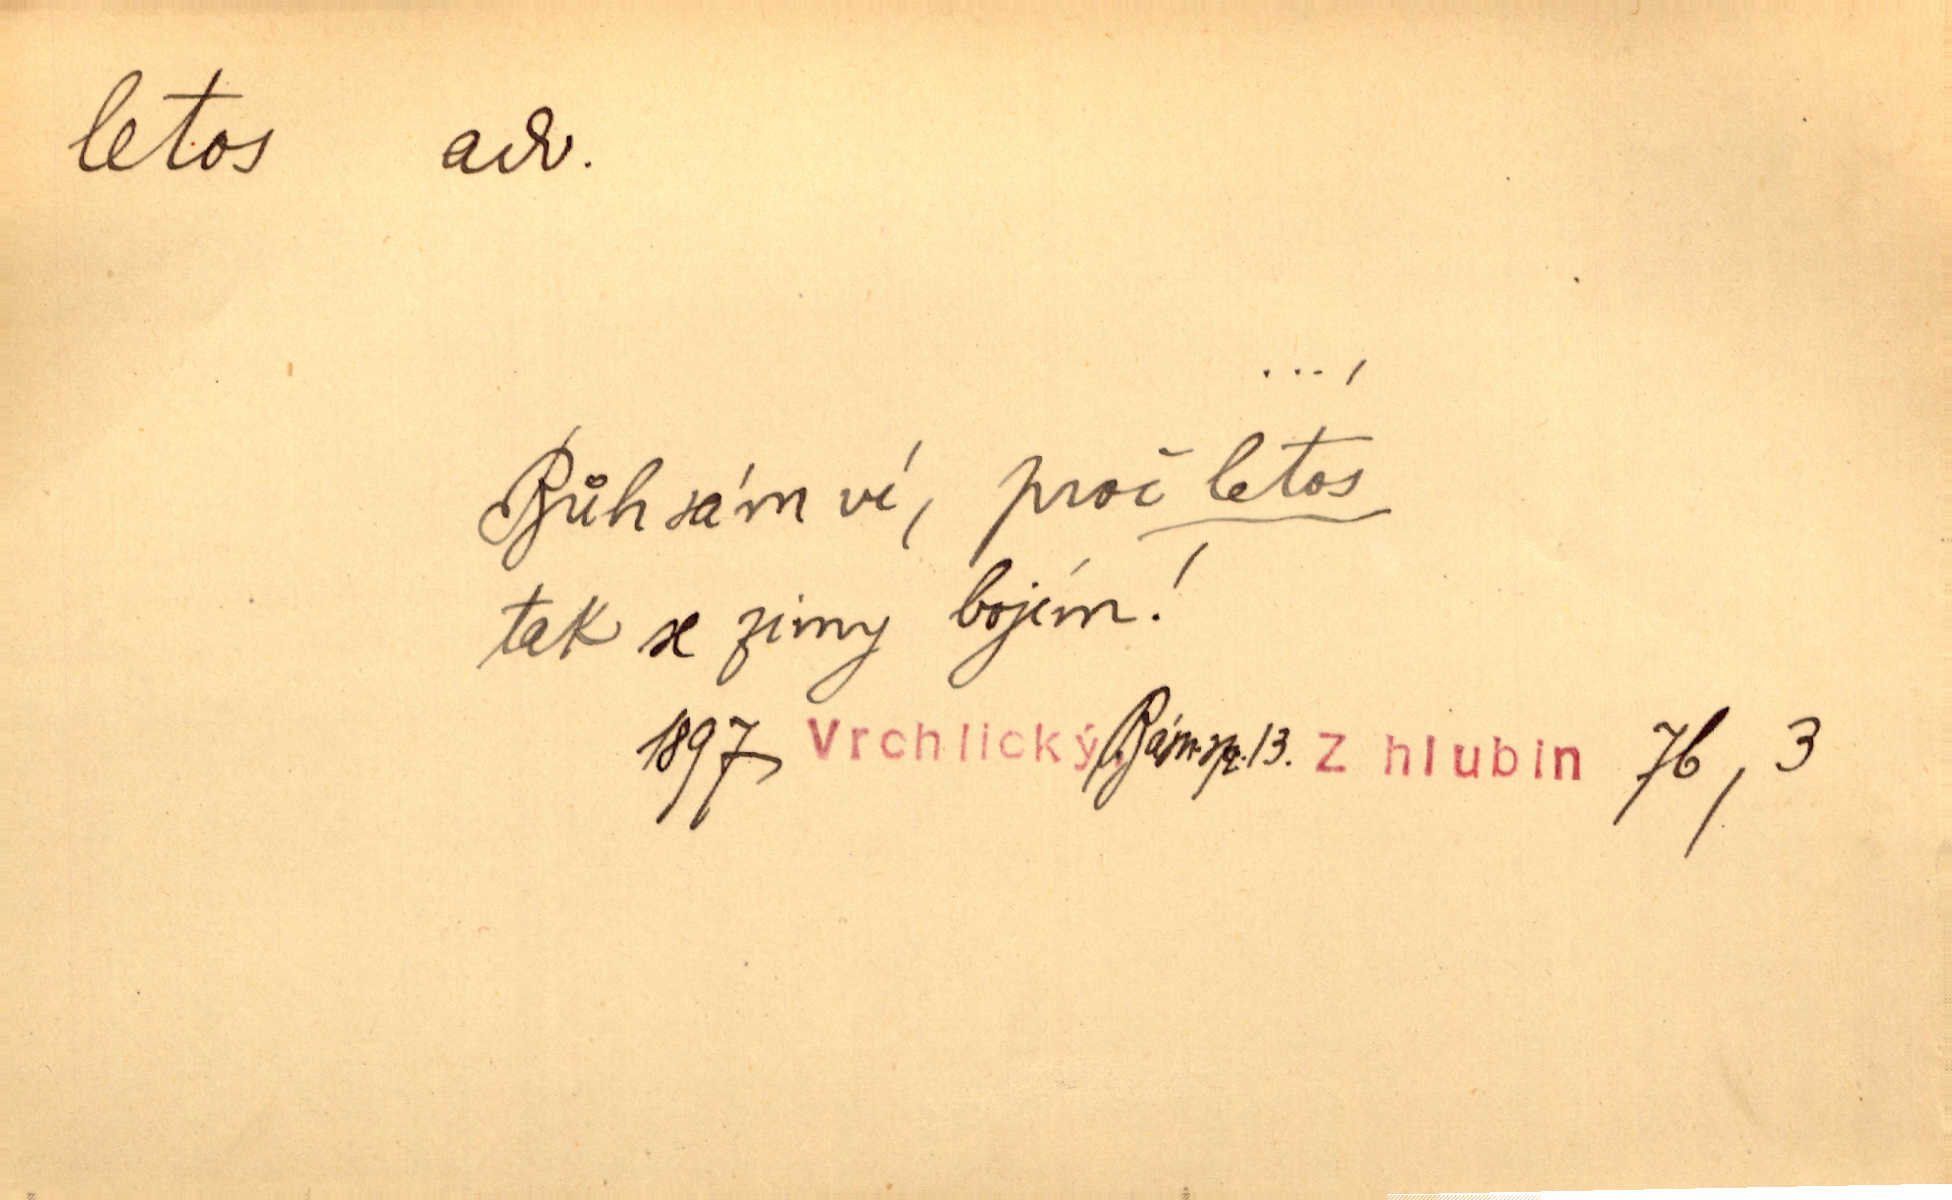 letos adv.
...,
Bůh sám ví, proč letos
tak se zimy bojím!
1897 Vrchlický, Bám.sp.13. Z hlubin 76, 3